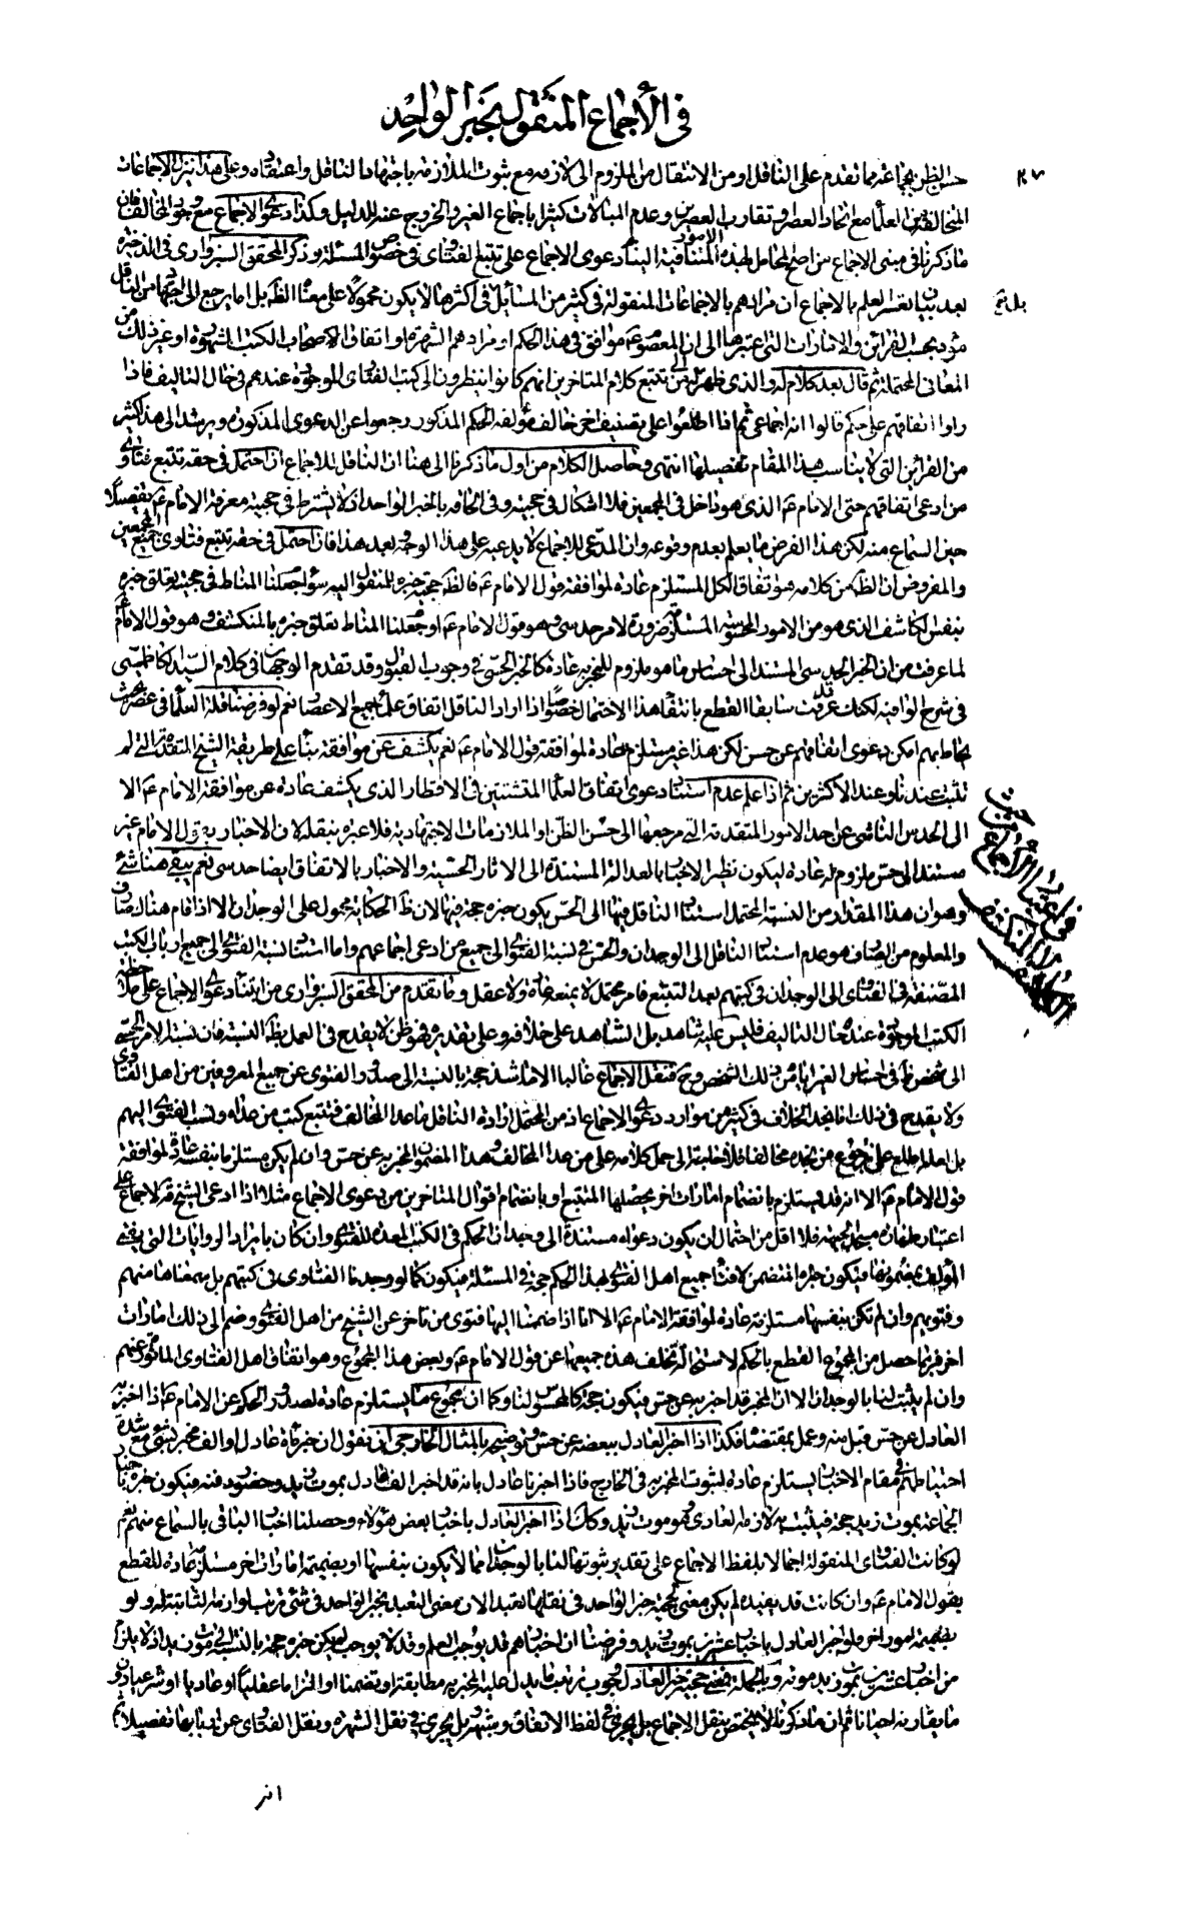 في الأجماع المنقول بخبر الواحد
٤٧
حسن الظن بجماعة ممن تقدم على الناقل او من الانتقال من الملزوم الى لازمه مع ثبوت الملازمة باجتهاد الناقل واعتقاده وعلى هذا ينزل الاجماعات
المتخالفة من العلماء مع اتحاد العصر او تقارب العصرين وعدم المبالات كثيرا باجماع الغير والخروج عنه للدليل وكذا دعوى الاجماع مع وجود المخالف فان
ما ذكرنا في مبنى الاجماع من اصح المحامل لهذه الامور المتنافية لبناء دعوى الاجماع على تتبع الفتاوى في خصوص المسئلة وذكر المحقق السبزواري في الذخيرة
بعد بيان تعسر العلم بالاجماع ان مرادهم بالاجماعات المنقولة في كثير من المسائل بل في اكثرها لا يكون محمولا على معناه الظاهر بل اما يرجع الى اجتهاد من الناقل
مؤد بحسب القرائن والامارات التي اعتبرها الى ان المعصوم ع موافق في هذا الحكم او مرادهم الشهرة او اتفاق الاصحاب الكتب المشهورة او غير ذلك من
المعاني المحتملة ثم قال بعد كلام له والذي ظهر لي من تتبع كلام المتاخرين انهم كانوا ينظرون الى كتب الفتاوى الموجودة عندهم في حال التاليف فاذا
راوا اتفاقهم على حكم قالوا انه اجماعي ثم اذا اطلعوا على تصنيف اخر خالف مؤلفه الحكم المذكور رجعوا عن الدعوى المذكورة ويرشد الى هذا كثير
من القرائن التي لا يناسب هذا المقام تفصيلها انتهى وحاصل الكلام من اول ما ذكرنا الى هنا ان الناقل للاجماع ان احتمل في حقه تتبع فتاوى
من ادعى اتفاقهم حتى الامام ع الذي هو داخل في المجمعين فلا اشكال في حجيته وفي الحاقه بالخبر الواحد اذ لا يشترط في حجيته معرفة الامام ع تفصيلا
حين السماع منه لكن هذا الفرض مما يعلم بعدم وقوعه وان المدعي للاجماع لا يدعيه على هذا الوجه وبعد هذا فان احتمل في حقه تتبع فتاوى جميع المجمعين
والمفروض ان الظ من كلامه هو اتفاق الكل المستلزم عادة لموافقة قول الامام ع فالظ حجية خبره للمنقول اليه سواء جعلنا المناط في حجيته تعلق خبره
بنفس الكاشف الذي هو من الامور المحسوسة المستلزمة ضرورة لامر حدسي وهو قول الامام ع او جعلنا المناط تعلق خبره بالمنكشف وهو قول الامام ع
لما عرفت من ان الخبر الحدسي المستند الى احساس ما هو ملزوم للمخبر به عادة كالخبر الحسي في وجوب القبول وقد تقدم الوجهان في كلام السيد الكاظمي
في شرح الوافية لكنك قد عرفت سابقا القطع بانتفاء هذا الاحتمال خصوصا اذا اراد الناقل اتفاق علماء جميع الاعصار نعم لو فرضنا قلة العلماء في عصر بحيث
يحاط بهم امكن دعوى اتفاقهم عن حس لكن هذا غير مستلزم عادة لموافقة قول الامام ع نعم يكشف عن موافقته بناء على طريقة الشيخ المتقدمة التي لم
تثبت عندنا وعند الاكثرين ثم اذا علم عدم استناد دعوى اتفاق العلماء المتشتتين في الاقطار الذي يكشف عادة عن موافقة الامام ع الا
الى الحدس الناشي عن احد الامور المتقدمة التي مرجعها الى حسن الظن او الملازمات الاجتهادية فلا عبرة بنقله لان الاخبار بقول الامام ع غير
مستند الى حس ملزوم له عادة ليكون نظير الاخبار بالعدالة المستندة الى الاثار الحسية والاخبار بالاتفاق ايضا حدسي نعم يبقى هنا شئ
وهو ان هذا المقدار من النسبة المحتمل استناد الناقل فيها الى الحس يكون خبره حجة فيها لان ظ الحكاية محمول على الوجدان الا اذا قام هناك صارف
والمعلوم من الصارف هو عدم استناد الناقل الى الوجدان والحس في نسبة الفتوى الى جميع من ادعى اجماعهم واما استناد نسبة الفتوى الى جميع ارباب الكتب
المصنفة في الفتاوى الى الوجدان في كتبهم بعد التتبع فامر محتمل لا يمنعه عادة ولا عقل وما تقدم من المحقق السبزواري من ابتناء دعوى الاجماع على ملاحظة
الكتب الموجودة عنده حال التاليف فليس عليه شاهد بل الشاهد على خلافه وعلى تقديره فهو ظن لا يقدح في العمل بظ النسبة فان نسبة الامر الحسي
الى شخص ظ في احساس الغير اياه من ذلك الشخص وح فنقل الاجماع غالبا الا ما شذ حجة بالنسبة الى صدور الفتوى عن جميع المعروفين من اهل الفتاوى
ولا يقدح في ذلك انا نجد الخلاف في كثير من موارد دعوى الاجماع اذ من المحتمل ارادة الناقل ما عدا المخالف فتتبع كتب من عداه ونسب الفتوى اليهم
بل لعله اطلع على رجوع من نجده مخالفا فلا حاجة الى حمل كلامه على من عدا المخالف وهذا المضمون المخبر به عن حس وان لم يكن مستلزما بنفسه عادة لموافقة
قول الامام ع الا انه قد يستلزم بانضمام امارات اخر يحصلها المتتبع او بانضمام اقوال المتاخرين من دعوى الاجماع مثلا اذا ادعى الشيخ قده الاجماع على
اعتبار طهارة مسجد الجبهة فلا اقل من احتمال ان يكون دعواه مستندة الى وجدان الحكم في الكتب المعدة للفتوى وان كان بايراد الروايات التي يفتي
المؤلف بمضمونها فيكون خبره المتضمن لافتاء جميع اهل الفتوى بهذا الحكم حجة في المسئلة فيكون كما لو وجدنا الفتاوى في كتبهم بل سمعناها منهم
وفتويهم وان لم تكن بنفسها مستلزمة عادة لموافقة الامام ع الا انا اذا ضممنا اليها فتوى من تاخر عن الشيخ من اهل الفتوى وضم الى ذلك امارات
اخر فربما حصل من المجموع القطع بالحكم لاستحالة تخلف هذه جميعها عن قول الامام ع وبعض هذا المجموع وهو اتفاق اهل الفتاوى الماثورة عنهم
وان لم يثبت لنا بالوجدان الا ان المخبر قد اخبر به عن حس فيكون حجة كالمحسوس لنا وكما ان مجموع ما يستلزم عادة لصدور الحكم عن الامام ع اذا اخبر به
العادل عن حس قبل منه وعمل بمقتضاه فكذا اذا اخبر العادل ببعضه عن حس وتوضيحه بالمثال الخارجي ان نقول ان خبر مأة عادل او الف مخبر بشئ مع شدة
احتياطهم في مقام الاخبار يستلزم عادة لثبوت المخبر به في الخارج فاذا اخبرنا عادل بانه قد اخبر الف عادل بموت زيد وحضور دفنه فيكون خبره باخبار
الجماعة بموت زيد حجة فيثبت به لازمه العادي وهو موت زيد وكذلك اذا اخبر العادل باخبار بعض هؤلاء وحصلنا اخبار الباقي بالسماع منهم نعم
لو كانت الفتاوى المنقولة اجمالا بلفظ الاجماع على تقدير ثبوتها لنا بالوجدان مما لا يكون بنفسها او بضميمة امارات اخر مستلزمة عادة للقطع
بقول الامام ع وان كانت قد يفيده لم يكن معنى لحجية خبر الواحد في نقلها تعبدا لان معنى التعبد بخبر الواحد في شئ ترتيب لوازمه الثابتة له ولو
بضميمة امور اخر فلو اخبر العادل باخبار عشرين بموت زيد وفرضنا ان اخبارهم قد يوجب العلم وقد لا يوجب لم يكن خبره حجة بالنسبة الى موت زيد اذ لا يلزم
من اخبار عشرين بموت زيد موته وبالجملة فمعنى حجية خبر العادل وجوب ترتيب ما يدل عليه المخبر به مطابقة او تضمنا او التزاما عقليا او عاديا او شرعيا دون
ما يقارنه احيانا ثم ان ما ذكرنا لا يختص بنقل الاجماع بل يجري في لفظ الاتفاق وشبهه بل يجري في نقل الشهرة ونقل الفتاوى عن اربابها تفصيلا ثم
في اعتبار الأجماع من حيث
انه